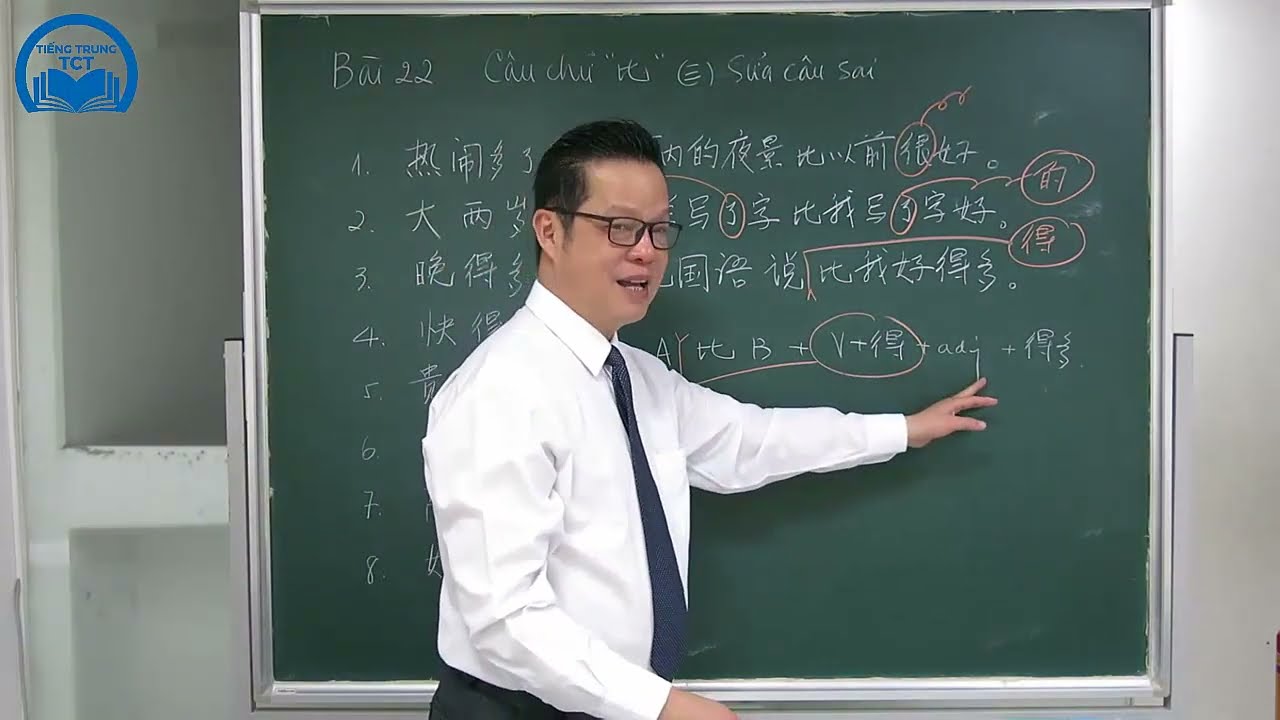 TIẾNG TRUNG
TCT
Bài 22 Câu chữ "比" (三) Sửa câu sai
1. 热闹多了 的夜景比以前很好。
的
2. 大两岁 写了字比我写了字好。
得
3. 晚得多 国语说比我好得多。
4. 快得
A 比 B + V+得 + adj + 得多.
5. 贵
6.
7.
8.